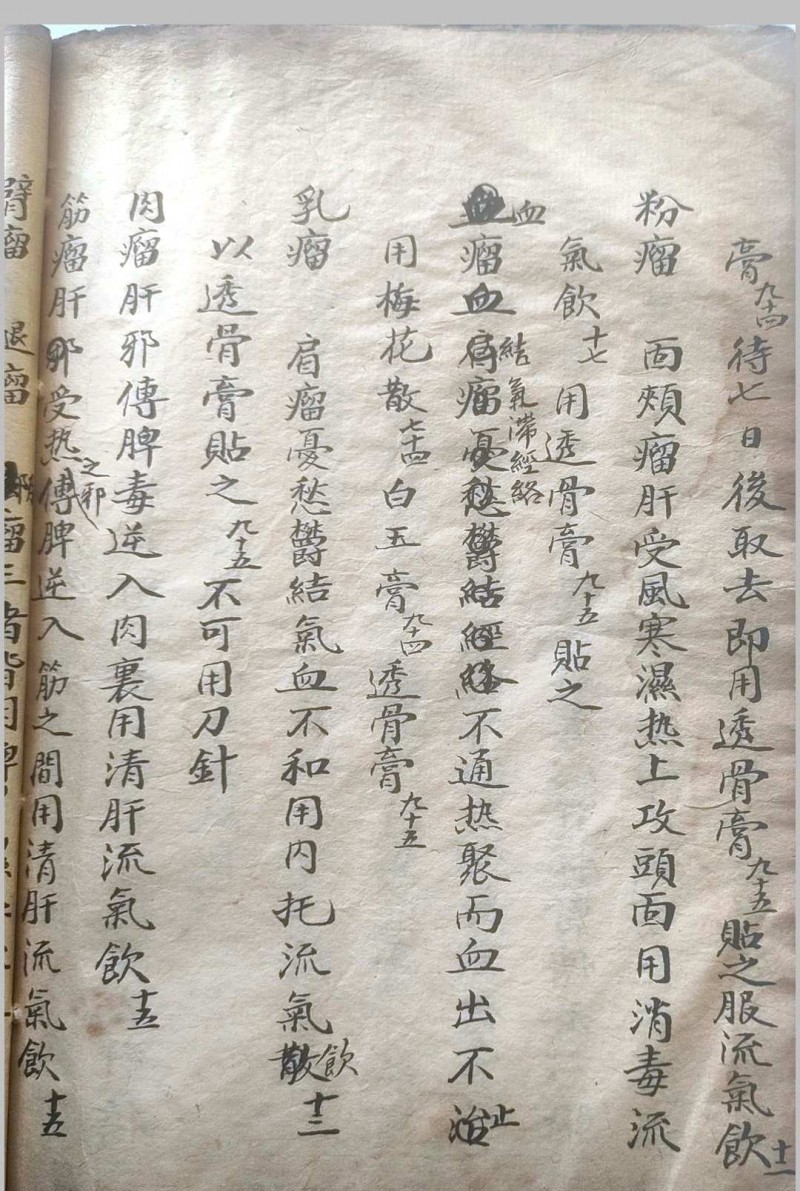 膏九十四待七日後取去即用透骨膏九十五貼之服流氣飲十二
粉瘤 面頰瘤肝受風寒濕热上攻頭面用消毒流
氣飲十七用透骨膏九十五貼之
血瘤血結氣滯經絡不通热聚而血出不止
用梅花散七十四白玉膏九十四透骨膏九十五
乳瘤 肩瘤憂愁鬱結氣血不和用内托流氣飲十二
以透骨膏貼之九十五不可用刀針
肉瘤肝邪傳脾毒逆入肉裏用清肝流氣飲十五
筋瘤肝受热之邪傳脾逆入筋之間用清肝流氣飲十五
臂瘤 退瘤 瘤三者皆因脾